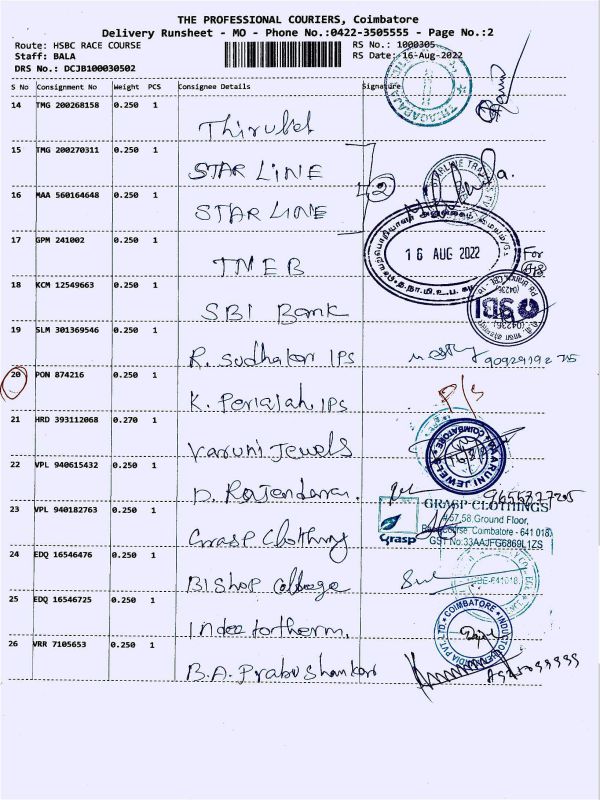 THE PROFESSIONAL COURIERS, Coimbatore
Delivery Runsheet - MO - Phone No.:0422-3505555 - Page No.:2
Route: HSBC RACE COURSE
RS No.: 1000305
Staff: BALA
RS Date: 16-Aug-2022
DRS No.: DCJB100030502
S No Consignment No Weight PCS Consignee Details Signature
14 TMG 200268158 0.250 1
15 TMG 200270311 0.250 1 STAR LINE
2
16 MAA 560164648 0.250 1 STAR LINE
16 AUG 2022
17 GPM 241002 0.250 1 TNEB
For
18 KCM 12549663 0.250 1 SBI Bank
SBI
19 SLM 301369546 0.250 1 R. Sudhakar IPS
20 PON 874216 0.250 1 K. Periaiah IPS
P/S
21 HRD 393112068 0.270 1 Varuni Jewels
VARUNI JEWELS
COIMBATORE
22 VPL 940615432 0.250 1 D. Rajendaran.
23 VPL 940182763 0.250 1 Grasp Clothing
GRASP CLOTHINGS
Grasp
57,58, Ground Floor,
Course, Coimbatore - 641 018
GST No:33AAJFG6869L1ZS
24 EDQ 16546476 0.250 1 Bishop College
25 EDQ 16546725 0.250 1 Inductotherm.
COIMBATORE
26 VRR 7105653 0.250 1 B.A. Prabushankar